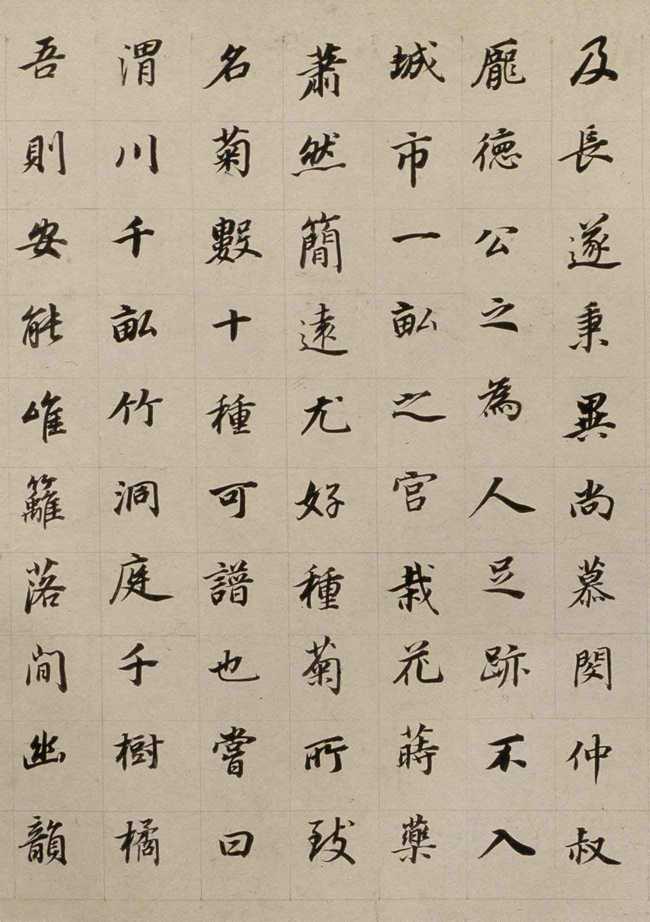 及長遂秉異尚慕閔仲叔
龐德公之為人足跡不入
城市一畝之宮栽花蒔藥
蕭然簡遠尤好種菊所致
名菊數十種可譜也嘗曰
渭川千畝竹洞庭千樹橘
吾則安能唯籬落間幽韻